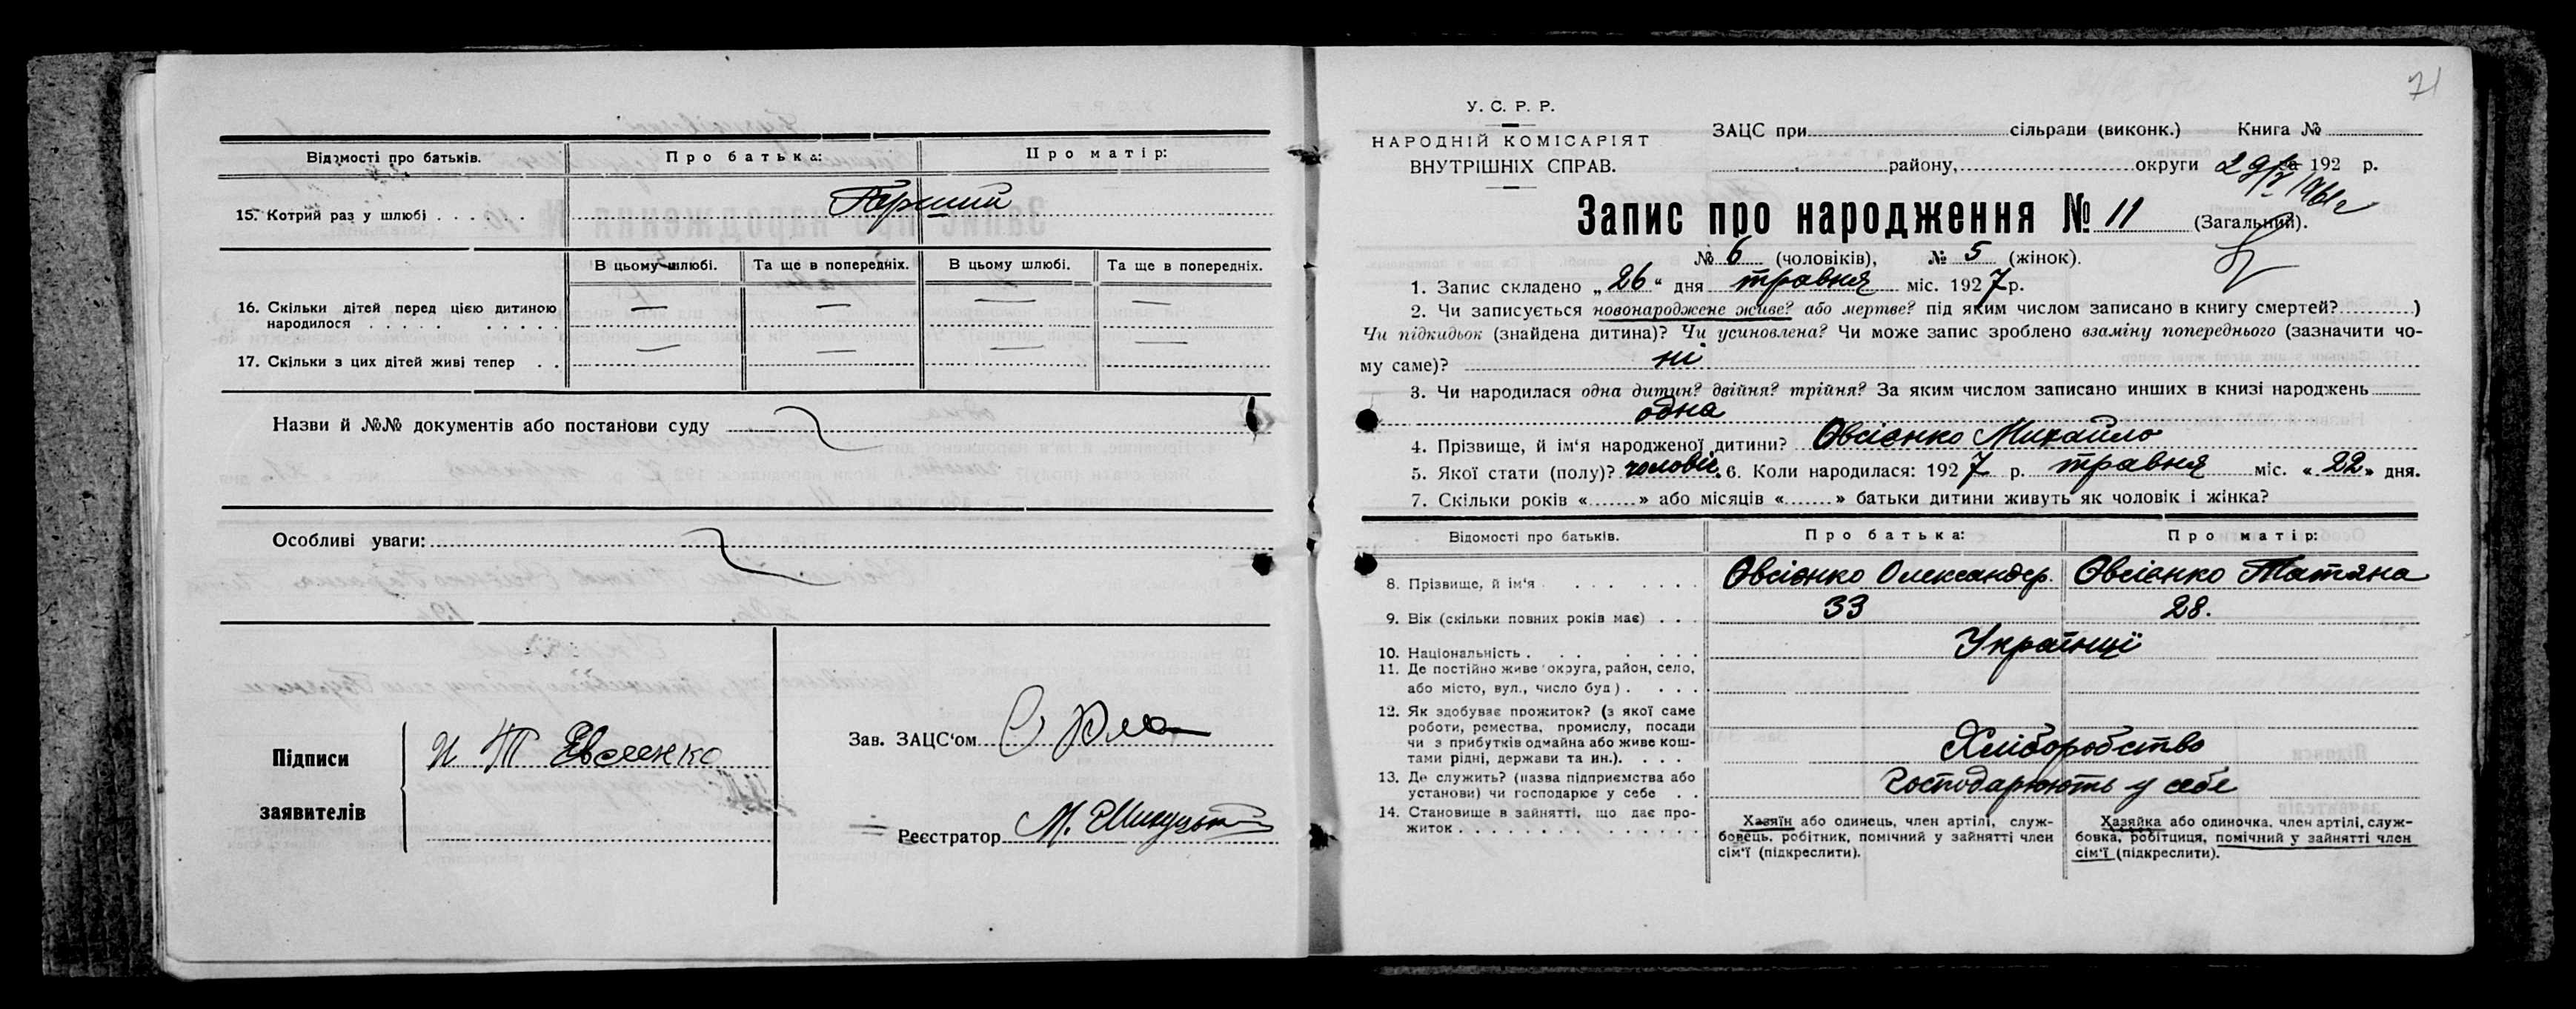 Відомості про батьків. Про батька: Про матір:
15. Котрий раз у шлюбі . . . . . . Перший
В цьому шлюбі. Та ще в попередніх. В цьому шлюбі. Та ще в попередніх.
16. Скільки дітей перед цією дитиною — — — —
народилося . . . . . . . . . .
17. Скільки з цих дітей живі тепер . . — — — —
Назви й №№ документів або постанови суду
Особливі уваги:
Підписи
заявителів
Зав. ЗАЦС'ом
Реєстратор М.
71
У. С. Р. Р.
НАРОДНІЙ КОМІСАРІЯТ
ВНУТРІШНІХ СПРАВ.
ЗАЦС при сільради (виконк.) Книга №
району, округи 192 р.
Запис про народження № 11 (Загальний).
№ 6 (чоловіків), № 5 (жінок).
1. Запис складено „26“ дня травня міс. 1927 р.
2. Чи записується новонароджене живе? або мертве? під яким числом записано в книгу смертей?..........)
Чи підкидьок (знайдена дитина)? Чи усиновлена? Чи може запис зроблено взаміну попереднього (зазначити чо-
му саме)? ні
3. Чи народилася одна дитин? двійня? трійня? За яким числом записано инших в книзі народжень
одна
4. Прізвище, й ім'я народженої дитини? Овсієнко Михайло
5. Якої стати (полу)? чоловіч. 6. Коли народилася: 1927 р. травня міс. «22» дня.
7. Скільки років «.......» або місяців «.......» батьки дитини живуть як чоловік і жінка?
Відомості про батьків. Про батька: Про матір:
8. Прізвище, й ім'я . . . . . . . Овсієнко Олександр. Овсієнко Татяна
9. Вік (скільки повних років має) . . . 33 28.
10. Національність . . . . . . . Українці
11. Де постійно живе округа, район, село,
або місто, вул., число буд) . . . .
12. Як здобуває прожиток? (з якої саме
роботи, ремества, промислу, посади
чи з прибутків одмайна або живе кош-
тами рідні, держави та ин.). . . . Хліборобство
13. Де служить? (назва підприємства або
установи) чи господарює у себе . . Господарюють у себе
14. Становище в зайнятті, що дає про-
житок . . . . . . . . . . . . .
Хазяїн або одинець, член артілі, служ-
бовець, робітник, помічний у зайнятті член
сім'ї (підкреслити).
Хазяйка або одиночка, член артілі, служ-
бовка, робітниця, помічний у зайнятті член
сім'ї (підкреслити).